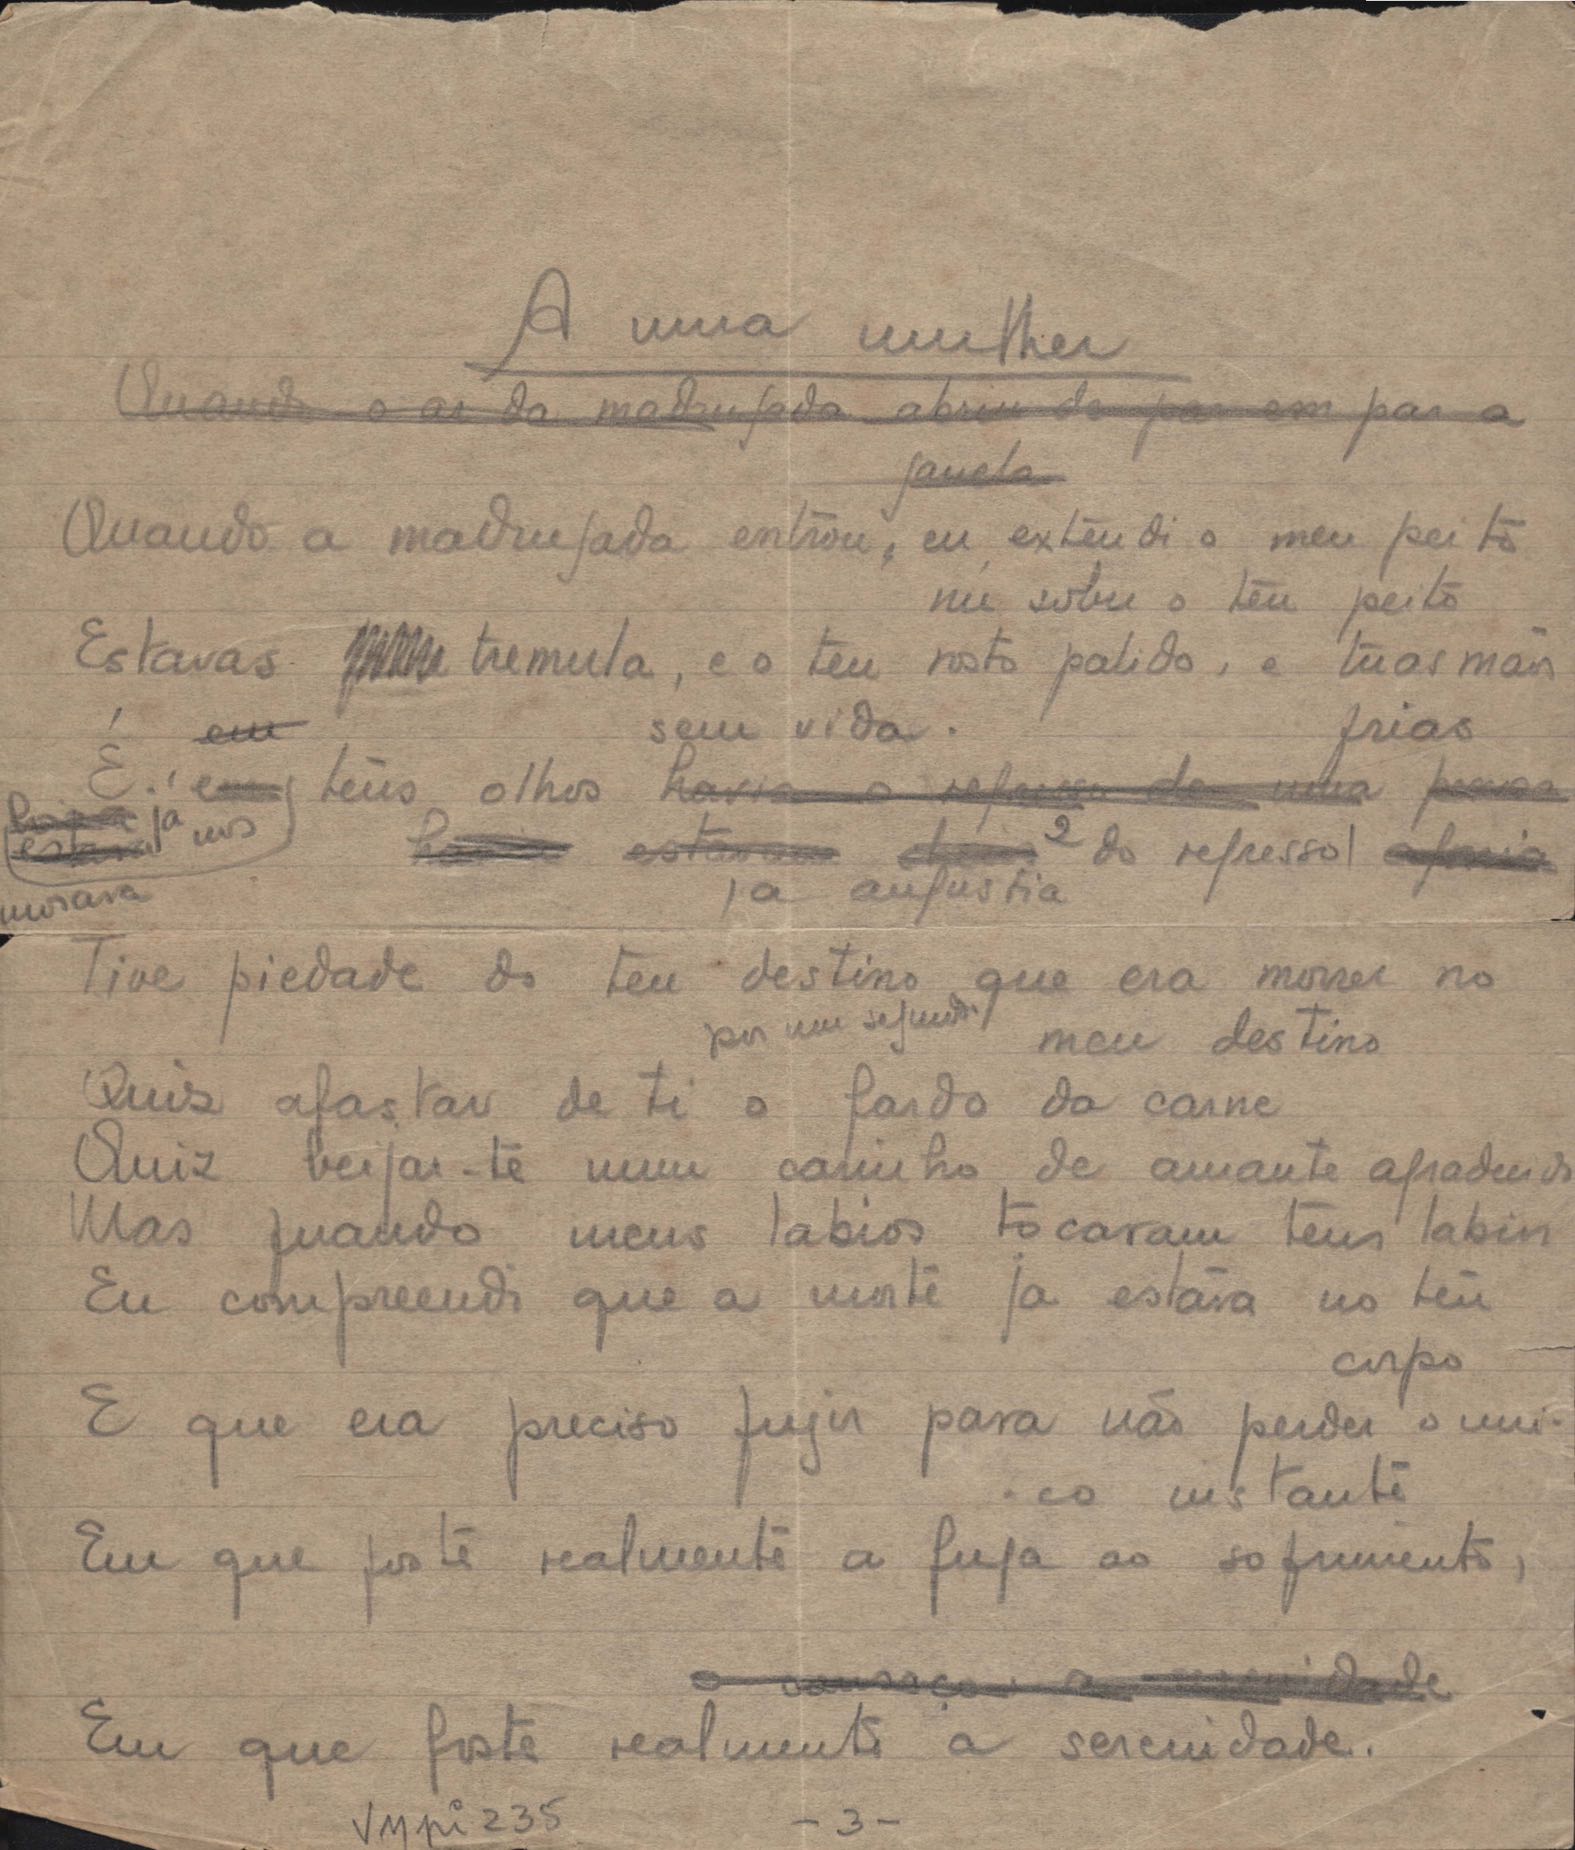 A uma mulher
Quando o ar da madrugada abriu de par em par a
janela
Quando a madrugada entrou, eu extendi o meu peito
nú sobre o teu peito
Estavas tremula, e o teu rosto palido, e tuas mãos
sem vida. frias
em
E. em teus olhos havia o regresso de uma
já nos
estava
havia estavam 2 do regresso
morava
já a angustia
Tive piedade do teu destino que era morrer no
por um segundo meu destino
Quiz afastar de ti o fardo da carne
Quiz beijar-te num carinho de amante agradecido
Mas quando meus labios tocavam teus labios
Eu compreendi que a morte ja estava no teu
corpo
E que era preciso fugir para não perder o uni-
-co instante
Em que foste realmente a fuga ao sofrimento,
o a serenidade
Em que foste realmente a serenidade.
VMpi 235
-3-